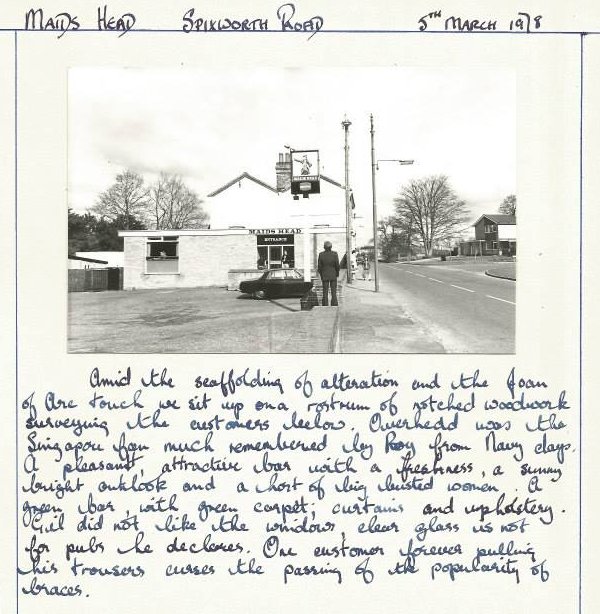 MAIDS HEAD SPIXWORTH ROAD 5TH MARCH 1978
MAIDS HEAD
ENTRANCE
Amid the scaffolding of alteration and the Joan
of Arc touch we sit up on a rostrum of notched woodwork
surveying the customers below. Overhead was the
Singapore fan much remembered by Roy from Navy days.
A pleasant, attractive bar with a freshness, a sunny
bright outlook and a host of big busted women. A
green bar, with green carpet, curtains and upholstery.
did not like the windows, clear glass is not
for pubs he declares. One customer forever pulling
his trousers curses the passing of the popularity of
braces.